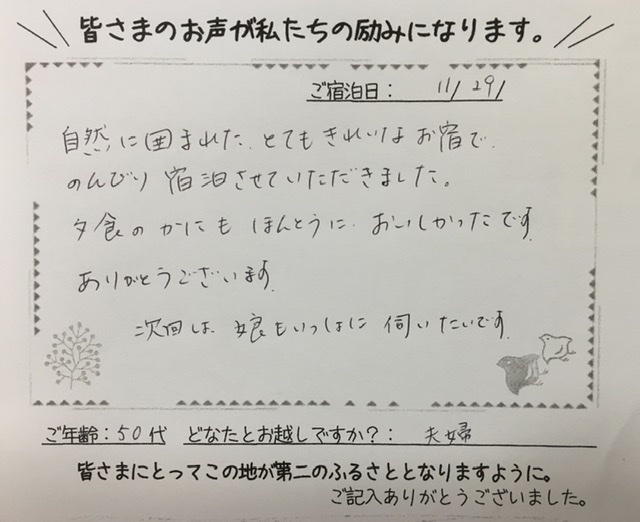 皆さまのお声が私たちの励みになります。
ご宿泊日: 11/29/
自然に囲まれた、とてもきれいなお宿で、
のんびり宿泊させていただきました。
夕食のかにもほんとうに、おいしかったです。
ありがとうございます。
次回は、娘もいっしょに伺いたいです。
ご年齢:50代 どなたとお越しですか?: 夫婦
皆さまにとってこの地が第二のふるさととなりますように。
ご記入ありがとうございました。